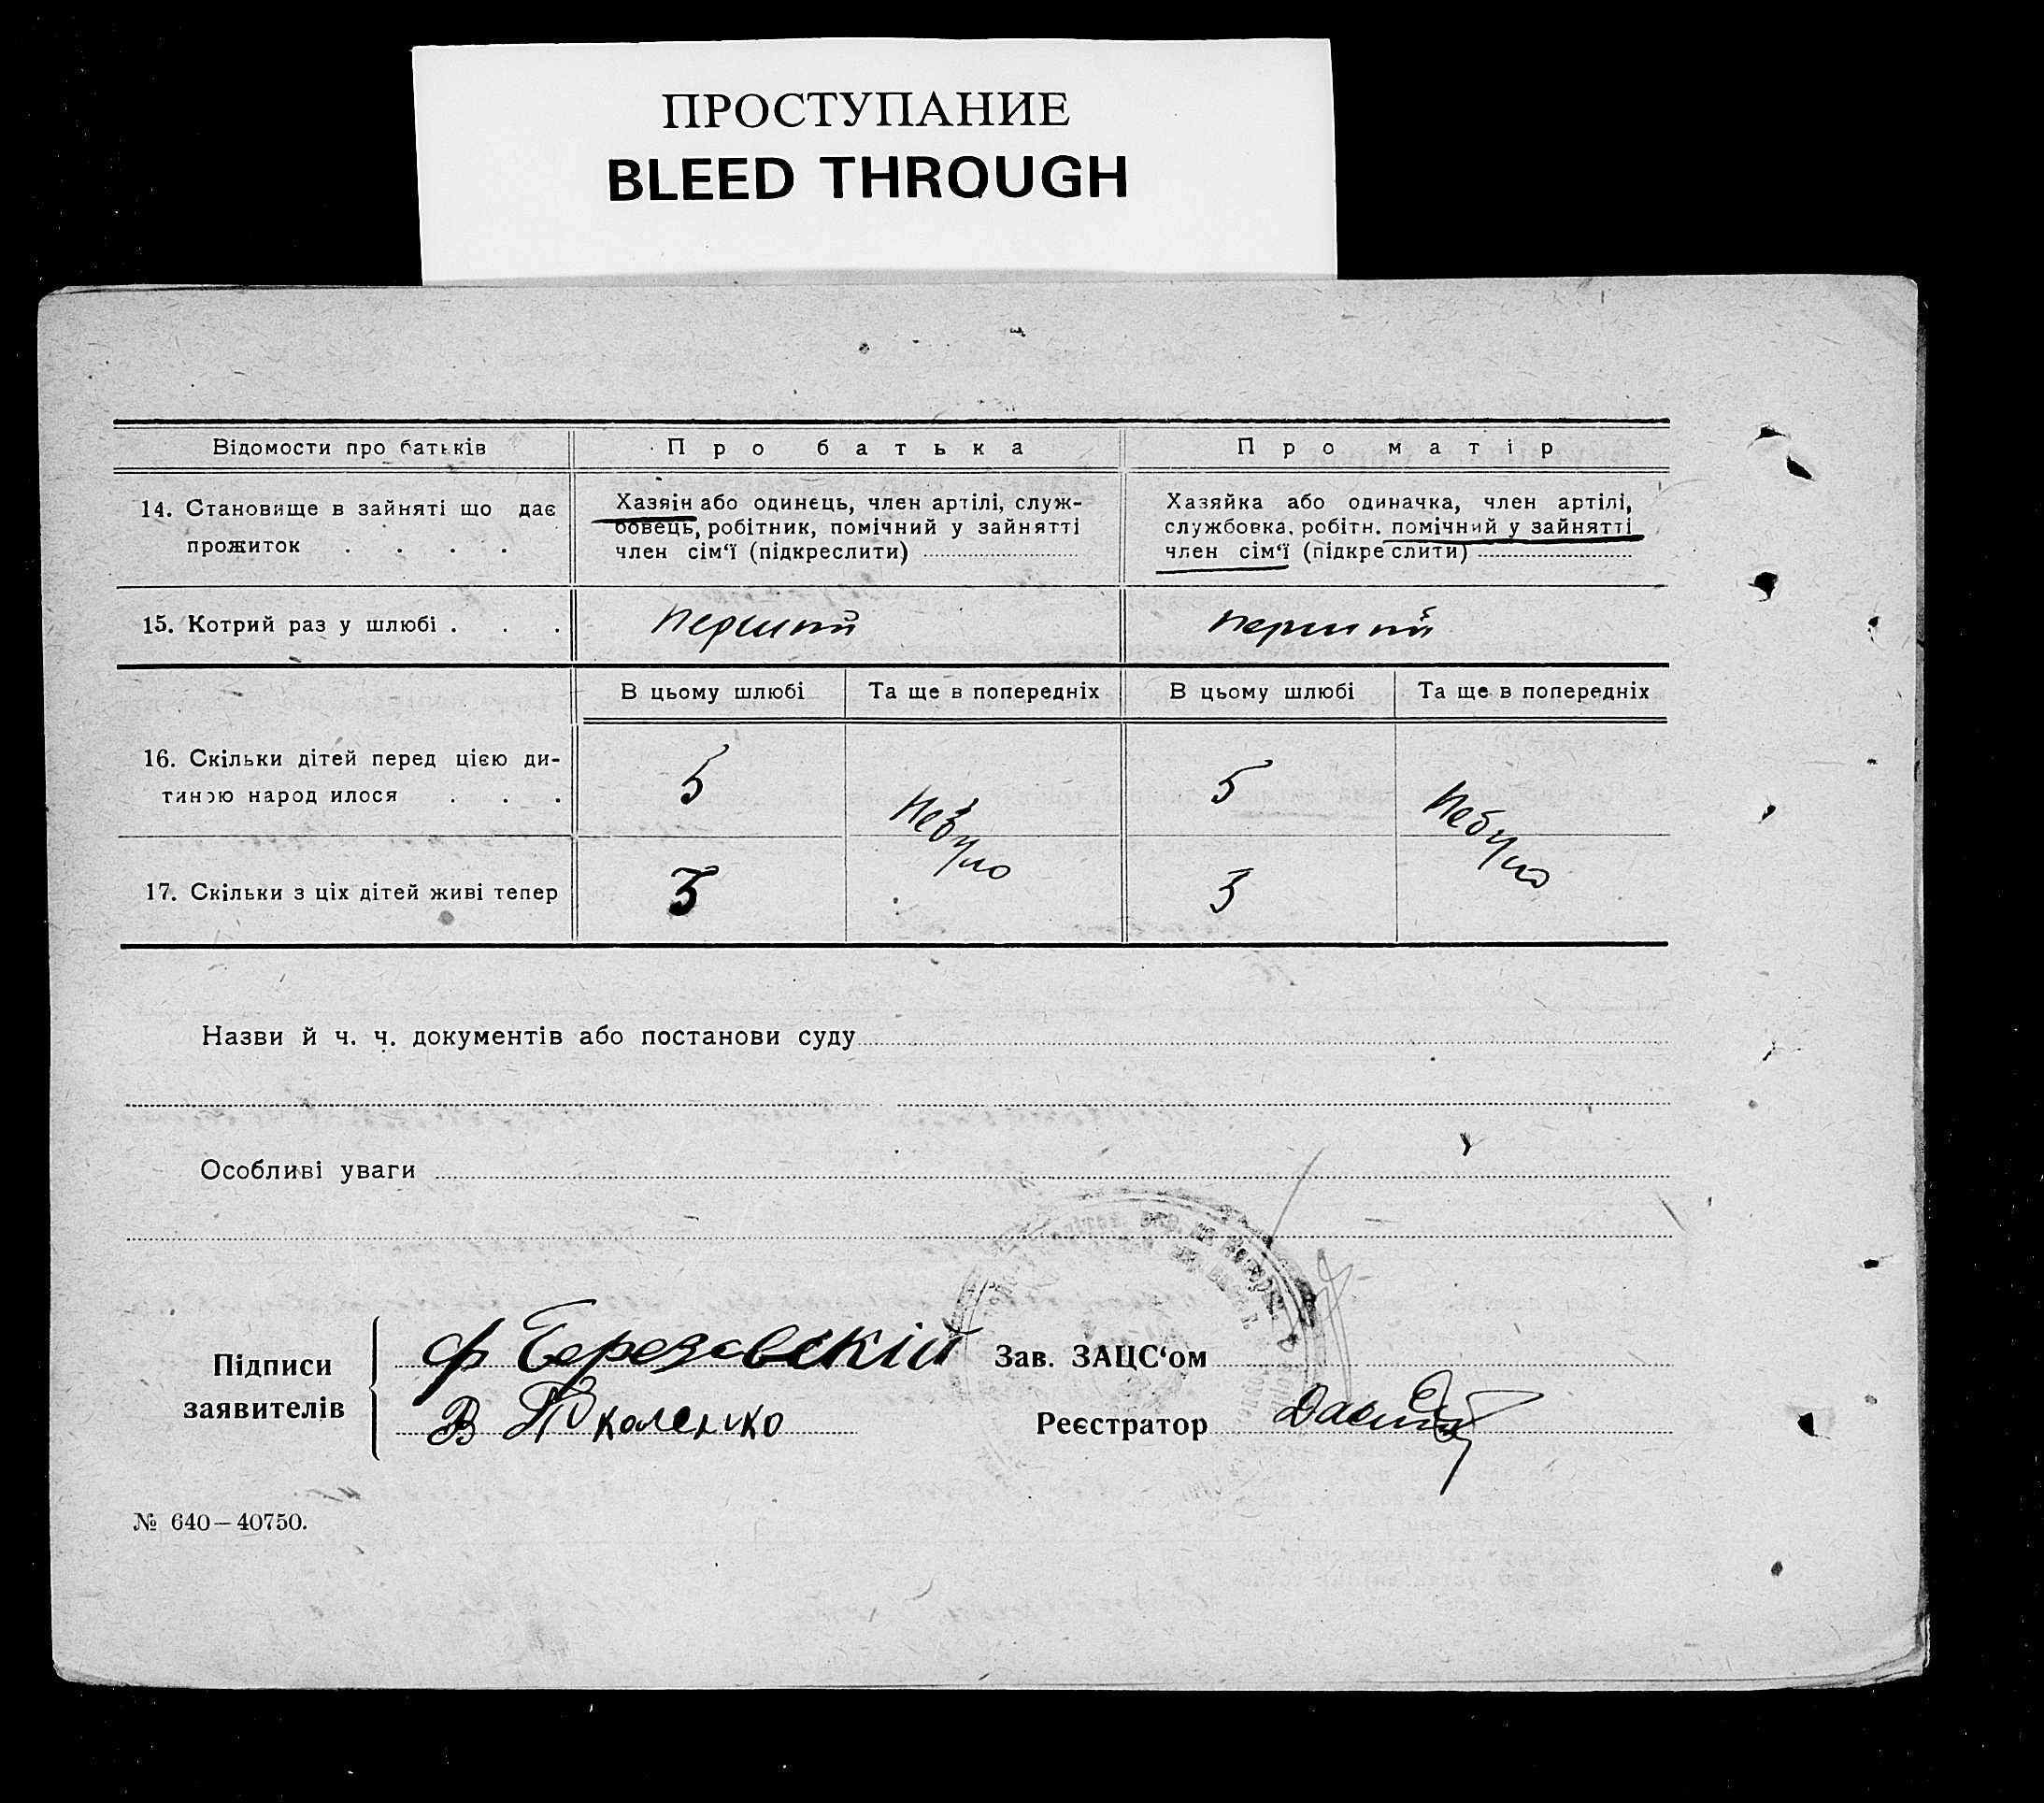 ПРОСТУПАНИЕ
BLEED THROUGH
Відомости про батьків
Про батька
Про матір
14. Становище в зайняті що дає
прожиток . . . .
Хазяїн або одинець, член артілі, служ-
бовець, робітник, помічний у зайнятті
член сім‘ї (підкреслити)
Хазяйка або одиначка, член артілі,
службовка, робітн. помічний у зайнятті
член сім‘ї (підкреслити)
15. Котрий раз у шлюбі . . .
перший
перший
В цьому шлюбі
Та ще в попередніх
В цьому шлюбі
Та ще в попередніх
16. Скільки дітей перед цією ди-
тиною народилося . . .
5
небуло
5
небуло
17. Скільки з ціх дітей живі тепер
3
3
Назви й ч. ч. документів або постанови суду
Особливі уваги
Підписи
заявителів
Ф Березовскій
Зав. ЗАЦС‘ом
В
Реєстратор
№ 640—40750.